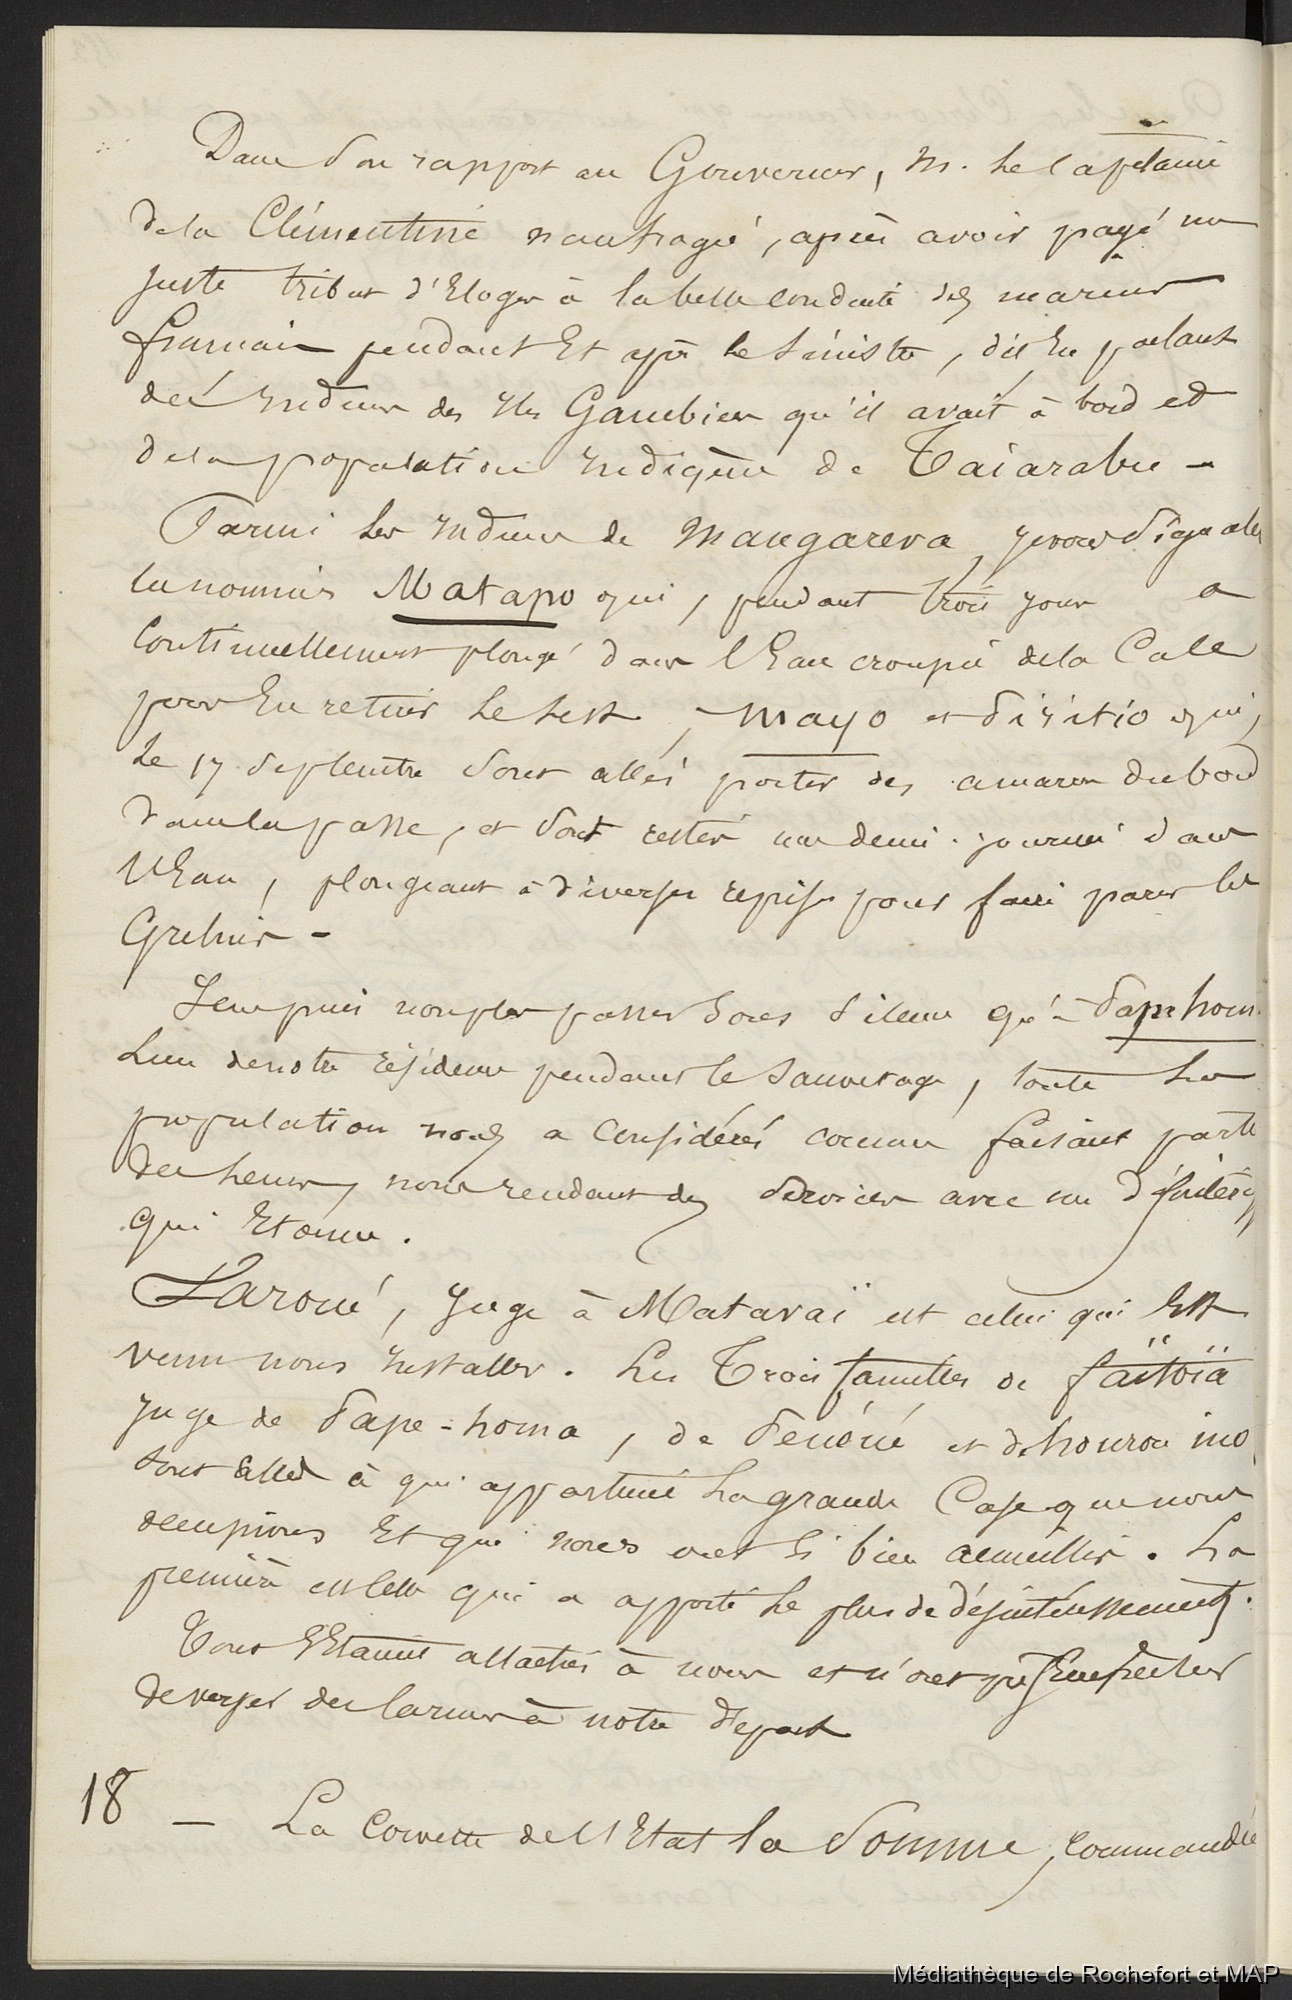 Dans son rapport au Gouverneur, M. le Capitaine
de la Clémentine naufragé, après avoir payé un
juste tribut d'Eloges à la belle conduite des marins
français pendant Et après le sinistre, dit En parlant
des Indiens des Iles Gambier qu'il avait à bord et
de la population Indigène de Taiarabu -
Parmi les Indiens de Mangareva, je vous signale
le nommé Matapo qui, pendant trois jours a
Continuellement plongé dans l'Eau croupie de la Cale
pour En retirer le lest, Mayo et Siritio qui,
le 17 septembre sont allés porter des amarres du bord
dans la passe, et sont restés une demi-journée dans
l'Eau, plongeant à diverses reprises pour faire parer les
Grelins -
Je ne puis non plus passer sous silence qu'à Papehom
Lieu de notre résidence pendant le Sauvetage, toute la
population nous a considérés comme faisant partie
des leurs, nous rendant des services avec un désintér
qui Etonne.
Paroué, Juge à Mataraï est celui qui Est
venu nous Installer. Les Trois familles de faïtoïa
Juge de Pape-homa, de Penoué et de hourou ino
sont celles à qui appartient la grande Case que nous
occupions Et qui nous ont si bien accueillis. La
première est celle qui a apporté le plus de désintéressement.
Tous S'Etaient attachés à nous et n'ont pu s'Empêcher
de verser des larmes à notre départ
18 - La Corvette de l'Etat la Somme, commandée
Médiathèque de Rochefort et MAP